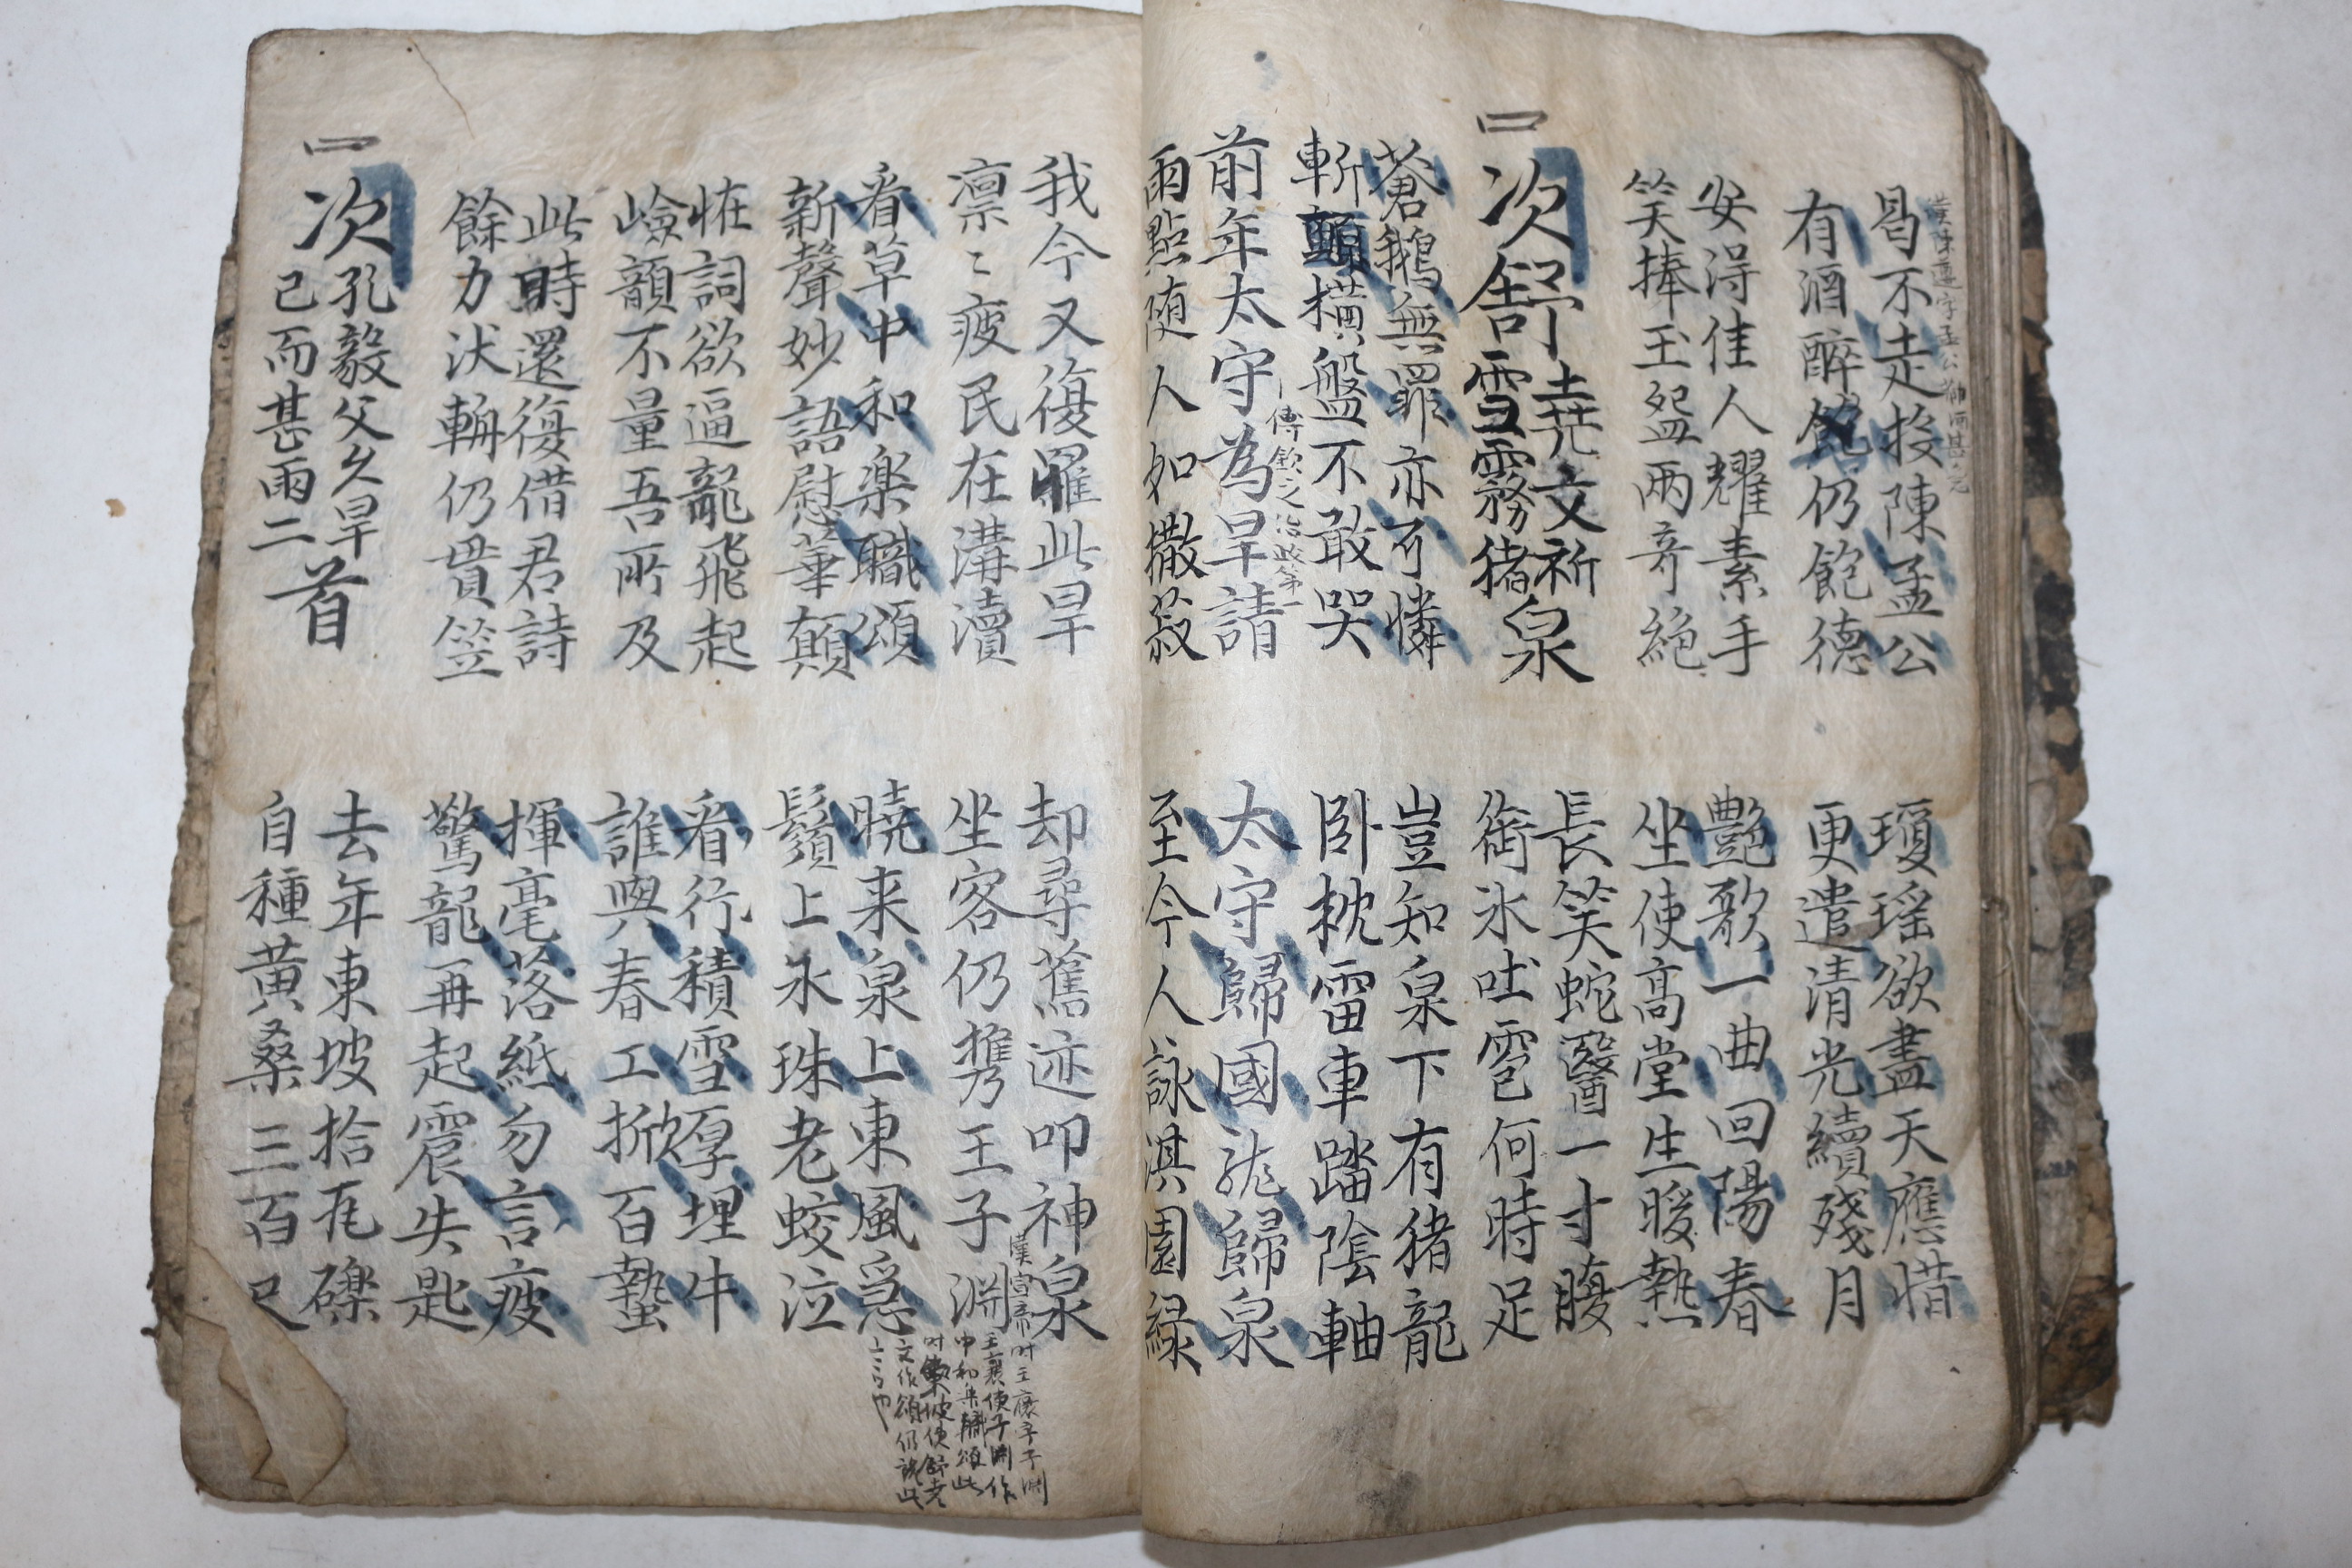 曷不走投陳孟公
有酒醉飽仍飽德
瓊瑤欲盡天應惜
更遣清光續殘月
安淂佳人耀素手
笑捧玉盌兩奇絕
艶歌一曲回陽春
坐使高堂生暖熱
四
次舒堯文祈雪霧猪泉
長笑蛇醫一寸腹
銜氷吐雹何時足
蒼鵝無罪亦可憐
斬頸橫盤不敢哭
豈知泉下有猪龍
卧枕雷車踏陰軸
前年太守為旱請
傅欽之治政第一
雨點随人如撒菽
太守歸國龍歸泉
至今人詠淇園綠
我今又復罹此旱
凛〻疲民在溝瀆
却尋舊迹叩神泉
坐客仍携王子淵
漢宣帝时王褒字子渊
王襄使子渊作
中和樂職頌此
时東坡使舒堯
文作頌仍說此
云云也
看草中和樂職頌
新聲妙語慰華顛
曉来泉上東風急
鬚上氷珠老蛟泣
恠詞欲逼龍飛起
嶮韻不量吾所及
看行積雪厚埋牛
誰與春工掀百蟄
此時還復借君詩
餘力汰輈仍貫笠
揮毫落紙勿言疲
驚龍再起震失匙
四
次孔毅父久旱已而甚雨二首
去年東坡拾瓦礫
自種黃桑三百尺